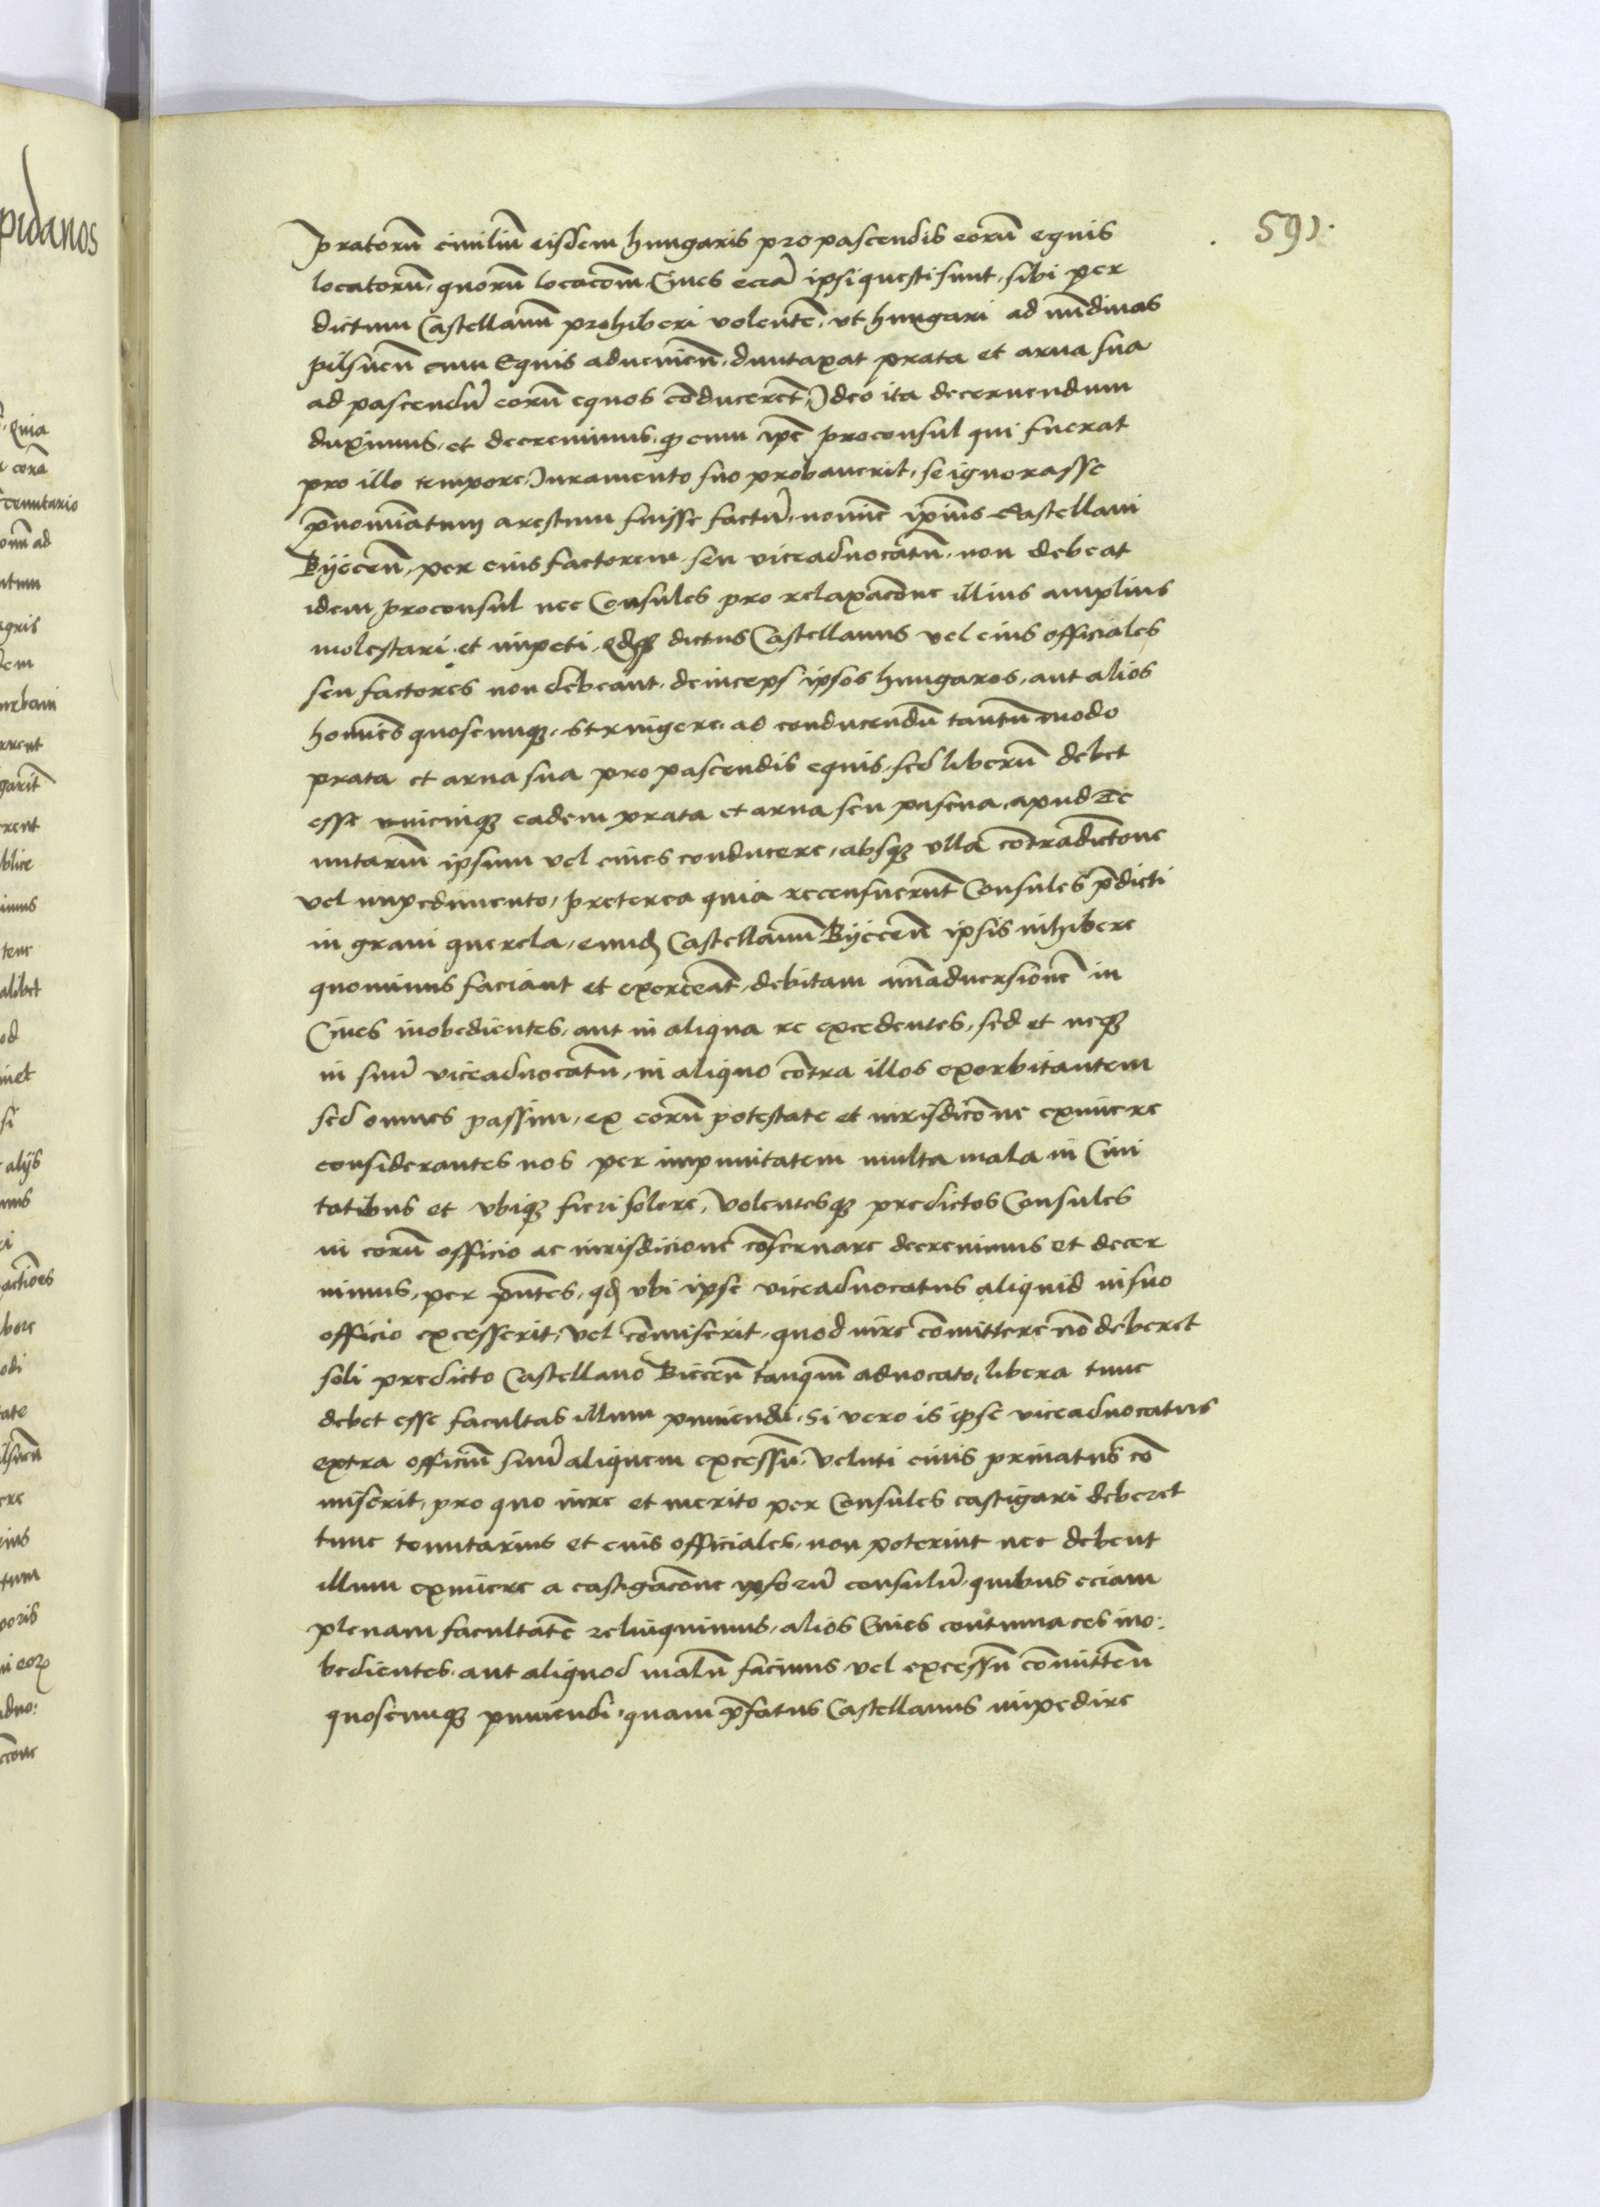 591.
pratorũ ciuiliũ eisdem hungaris pro pascendis eorũ equis
locatorũ, quorũ locacõm, Ciues eciã ipsi questi sunt, sibi per
dictum Castellanũ prohiberi volentẽ, vt hungari ad nũdinas
pilsnen̄ cum Equis aduenien̄, duntaxat prata et arua sua
ad pascendũ eorũ equos cõducerẽt, Ideo ita decernendum
duximus, et decreuimus, ꝙ cum ip̄e proconsul qui fuerat
pro illo tempore, Iuramento suo probauerit, se ignorasse
p̄nomĩatum arestum fuisse factũ, nomĩe ip̄ius Castellani
Byeceñ, per eius factorem seu viceaduocatũ, non debeat
idem proconsul nec Consules pro relaxacõne illius amplius
molestari et impeti, ꝙqꝫ dictus Castellanus vel eius officiales
seu factores non debeant, deinceps ipsos hungaros, aut alios
homĩes quoscumqꝫ, stringere, ad conducendũ tantũmodo
prata et arua sua pro pascendis equis, sed liberũ debet
esse vnicuiqꝫ eadem prata et arua seu pascua, apud Te
nutariũ ipsum vel ciues conducere, absqꝫ vlla cõtradictõne
vel impedimento, preterea quia recensuerũt Consules p̄dicti
in graui querela, eundẽ Castellanũ Byeceñ ipsis inhibere
quominus faciant et exerceãt, debitam aĩaduersionẽ in
Ciues inobedientes, aut in aliqua re excedentes, sed et neqꝫ
in suũ viceaduocatũ, in aliquo cõtra illos exorbitantem
sed omnes passim, ex eorũ potestate et iurisdicõne eximere
considerantes nos per impunitatem multa mala in Ciui
tatibus et vbiqꝫ fieri solere, volentesqꝫ predictos Consules
in eorũ officio ac iurisdicionẽ cõseruare decreuimus et decer
nimus, per p̄ntes, qđ vbi ipse viceaduocatus aliquid in suo
officio excesserit, vel cõmiserit, quod iure cõmittere nõ deberet
soli predicto Castellano Bieceñ tanqm̄ aduocato, libera tunc
debet esse facultas illum puniendi, Si vero is ipse viceaduocatus
extra officiũ suũ aliquem excessũ, veluti ciuis priuatus cõ
miserit, pro quo iure et merito per Consules castigari deberet
tunc tenutarius et eius officiales, non poterint nec debent
illum eximere a castigacõne ipsorũ consulũ, quibus eciam
plenam facultatẽ relinquimus, alios Ciues contumaces ino:
bedientes, aut aliquod malũ facimus, vel excessũ cõmitteñ
quoscumqꝫ puniendi, quam p̄fatus Castellanus impedire
pidanos